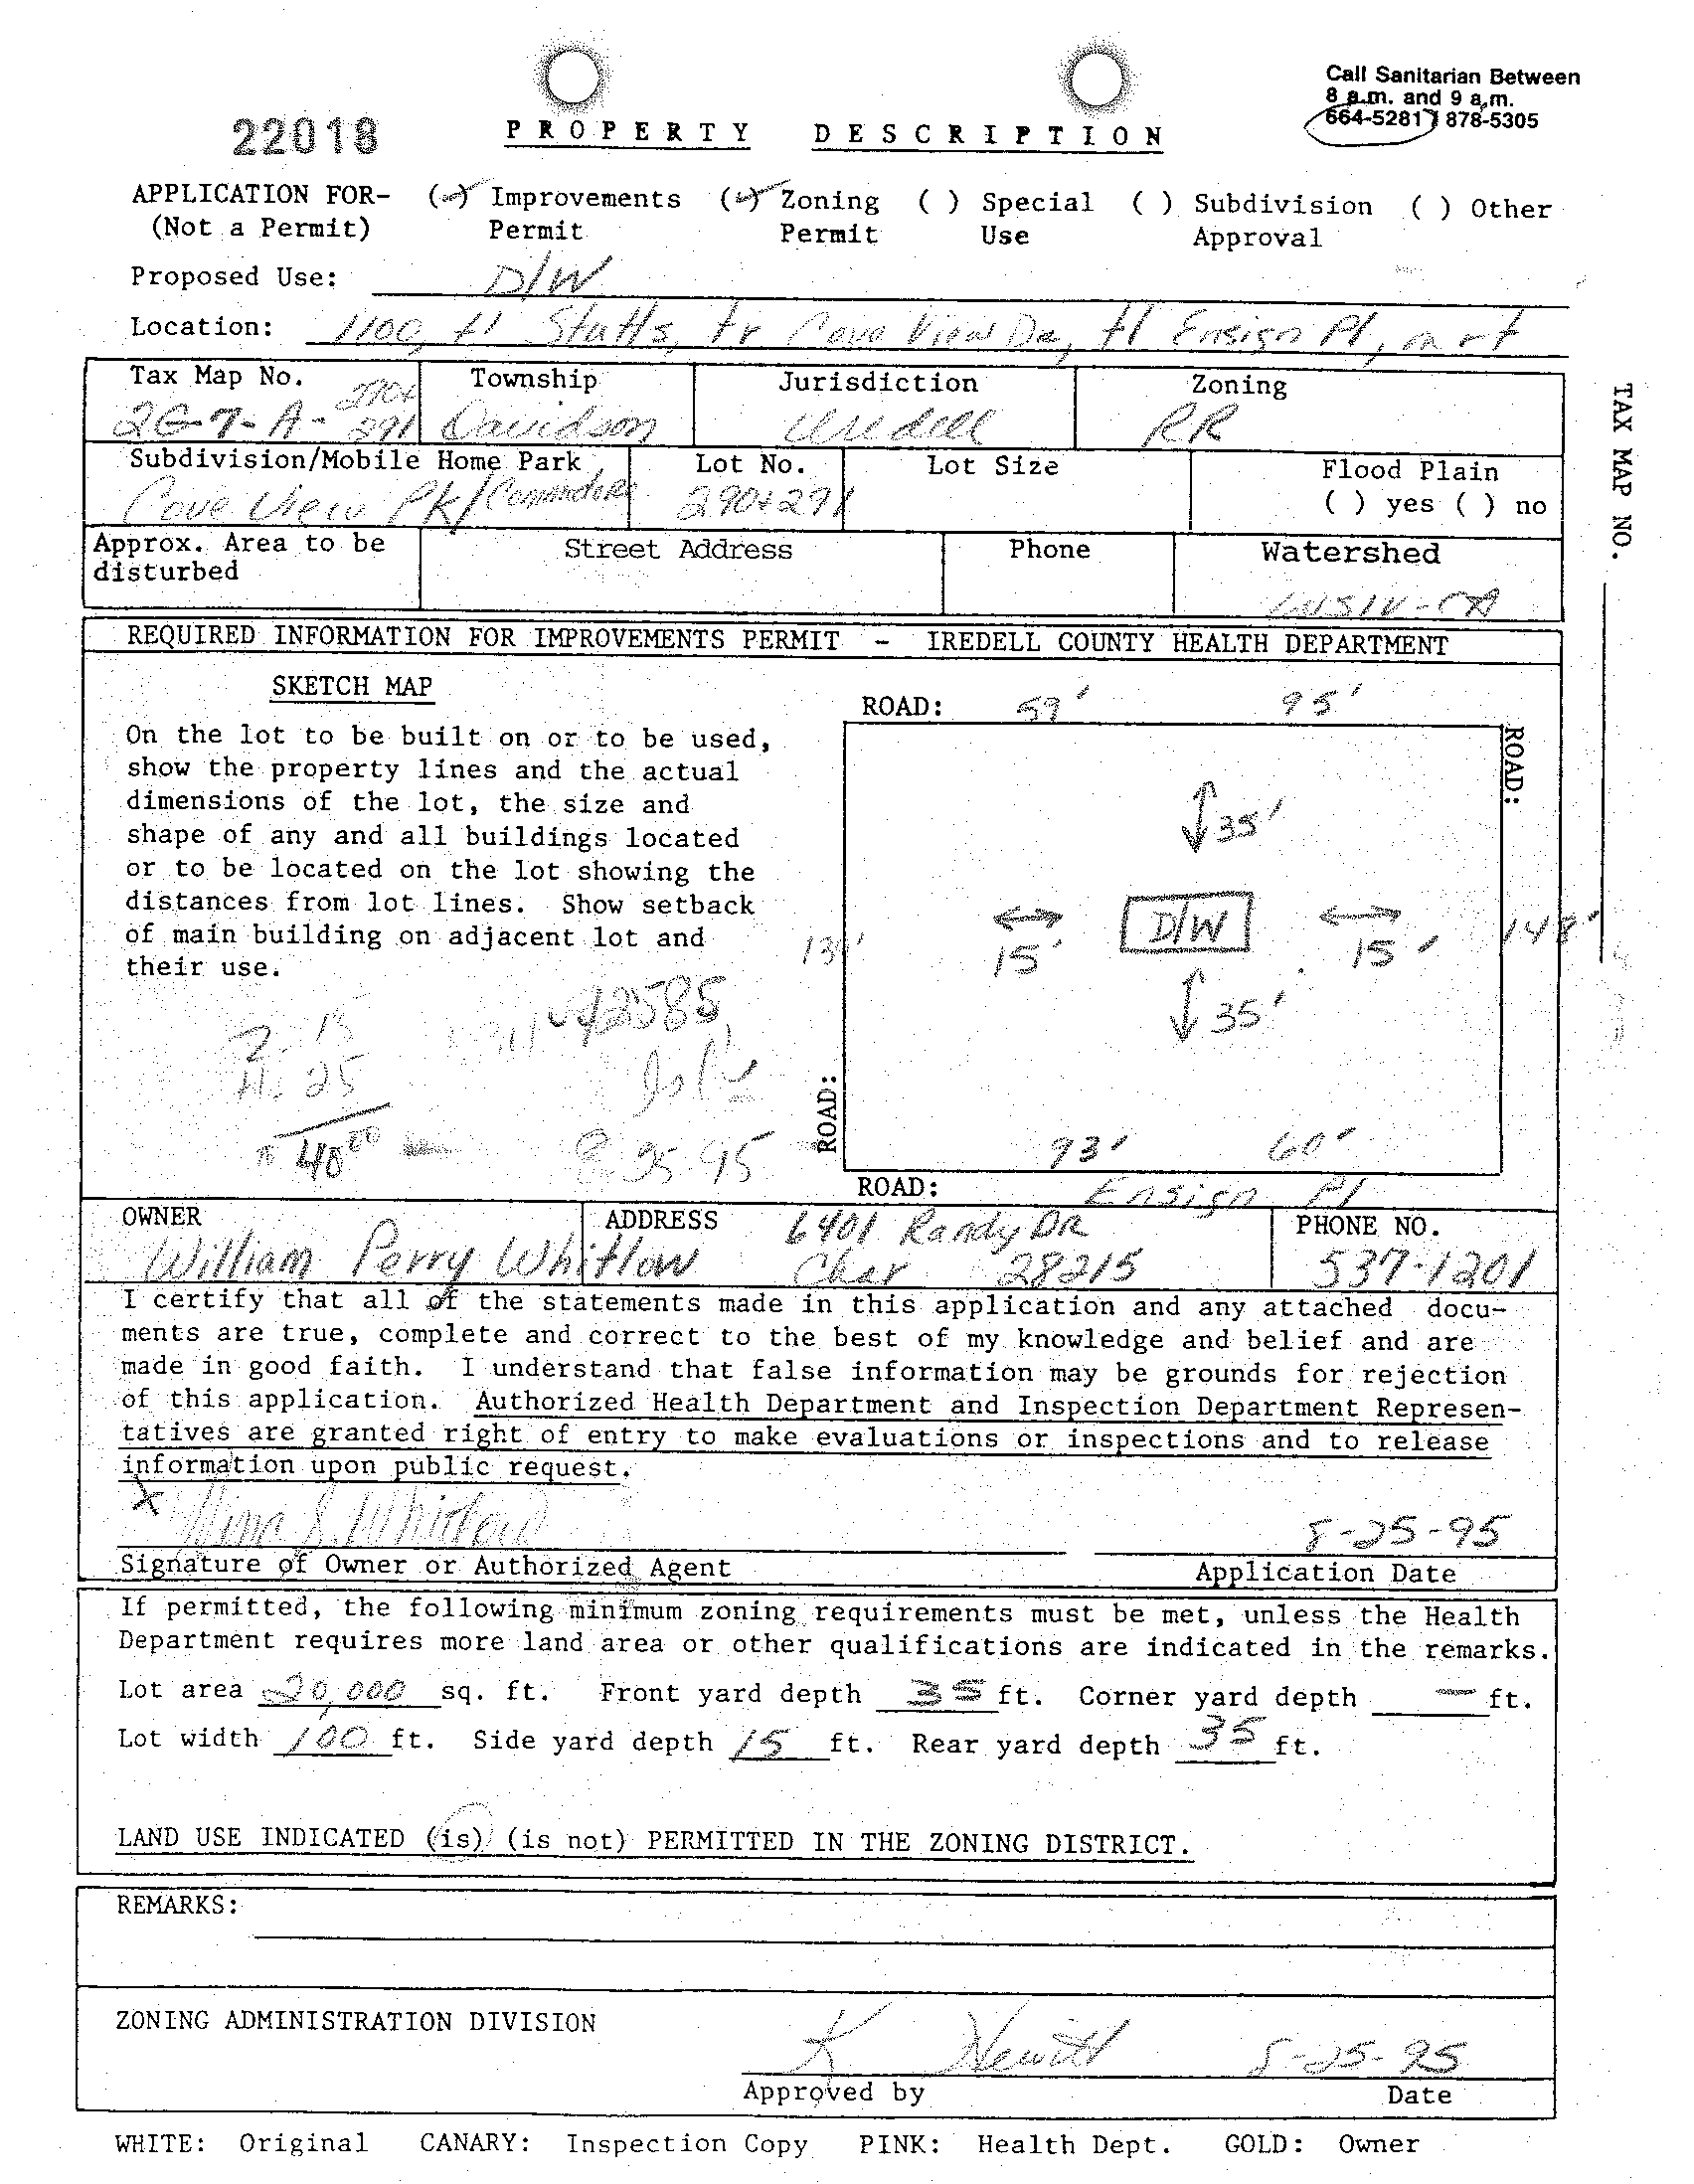 Call Sanitarian Between
8 a.m. and 9 a.m.
664-5281 / 878-5305
22018
PROPERTY DESCRIPTION
APPLICATION FOR- (✓) Improvements (✓) Zoning ( ) Special ( ) Subdivision ( ) Other
(Not a Permit) Permit Permit Use Approval
Proposed Use: D/W
Location: 1100, tl Stutts, tr Cove View Dr, tl Ensign Pl, on rt
Tax Map No. Township Jurisdiction Zoning
2G-7-A- 290+ 291 Davidson Iredell RR
Subdivision/Mobile Home Park Lot No. Lot Size Flood Plain
Cove View Pk/ 290+291 ( ) yes ( ) no
Approx. Area to be disturbed Street Address Phone Watershed
WSIV-CA
TAX MAP NO.
REQUIRED INFORMATION FOR IMPROVEMENTS PERMIT - IREDELL COUNTY HEALTH DEPARTMENT
SKETCH MAP
On the lot to be built on or to be used,
show the property lines and the actual
dimensions of the lot, the size and
shape of any and all buildings located
or to be located on the lot showing the
distances from lot lines. Show setback
of main building on adjacent lot and
their use.
Z. 15
H. 25
40 00
8-25-95
ROAD: 59' 95'
ROAD:
35'
D/W
15' 15'
148'
35'
ROAD:
93' 60'
ROAD: Ensign Pl
OWNER ADDRESS 6401 Randy DR PHONE NO.
William Perry Whitlow Char 28215 537-1201
I certify that all of the statements made in this application and any attached docu-
ments are true, complete and correct to the best of my knowledge and belief and are
made in good faith. I understand that false information may be grounds for rejection
of this application. Authorized Health Department and Inspection Department Represen-
tatives are granted right of entry to make evaluations or inspections and to release
information upon public request.
X S. Whitlow 8-25-95
Signature of Owner or Authorized Agent Application Date
If permitted, the following minimum zoning requirements must be met, unless the Health
Department requires more land area or other qualifications are indicated in the remarks.
Lot area 20,000 sq. ft. Front yard depth 35 ft. Corner yard depth — ft.
Lot width 100 ft. Side yard depth 15 ft. Rear yard depth 35 ft.
LAND USE INDICATED (is) (is not) PERMITTED IN THE ZONING DISTRICT.
REMARKS:
ZONING ADMINISTRATION DIVISION
K Hewitt 8-25-95
Approved by Date
WHITE: Original CANARY: Inspection Copy PINK: Health Dept. GOLD: Owner